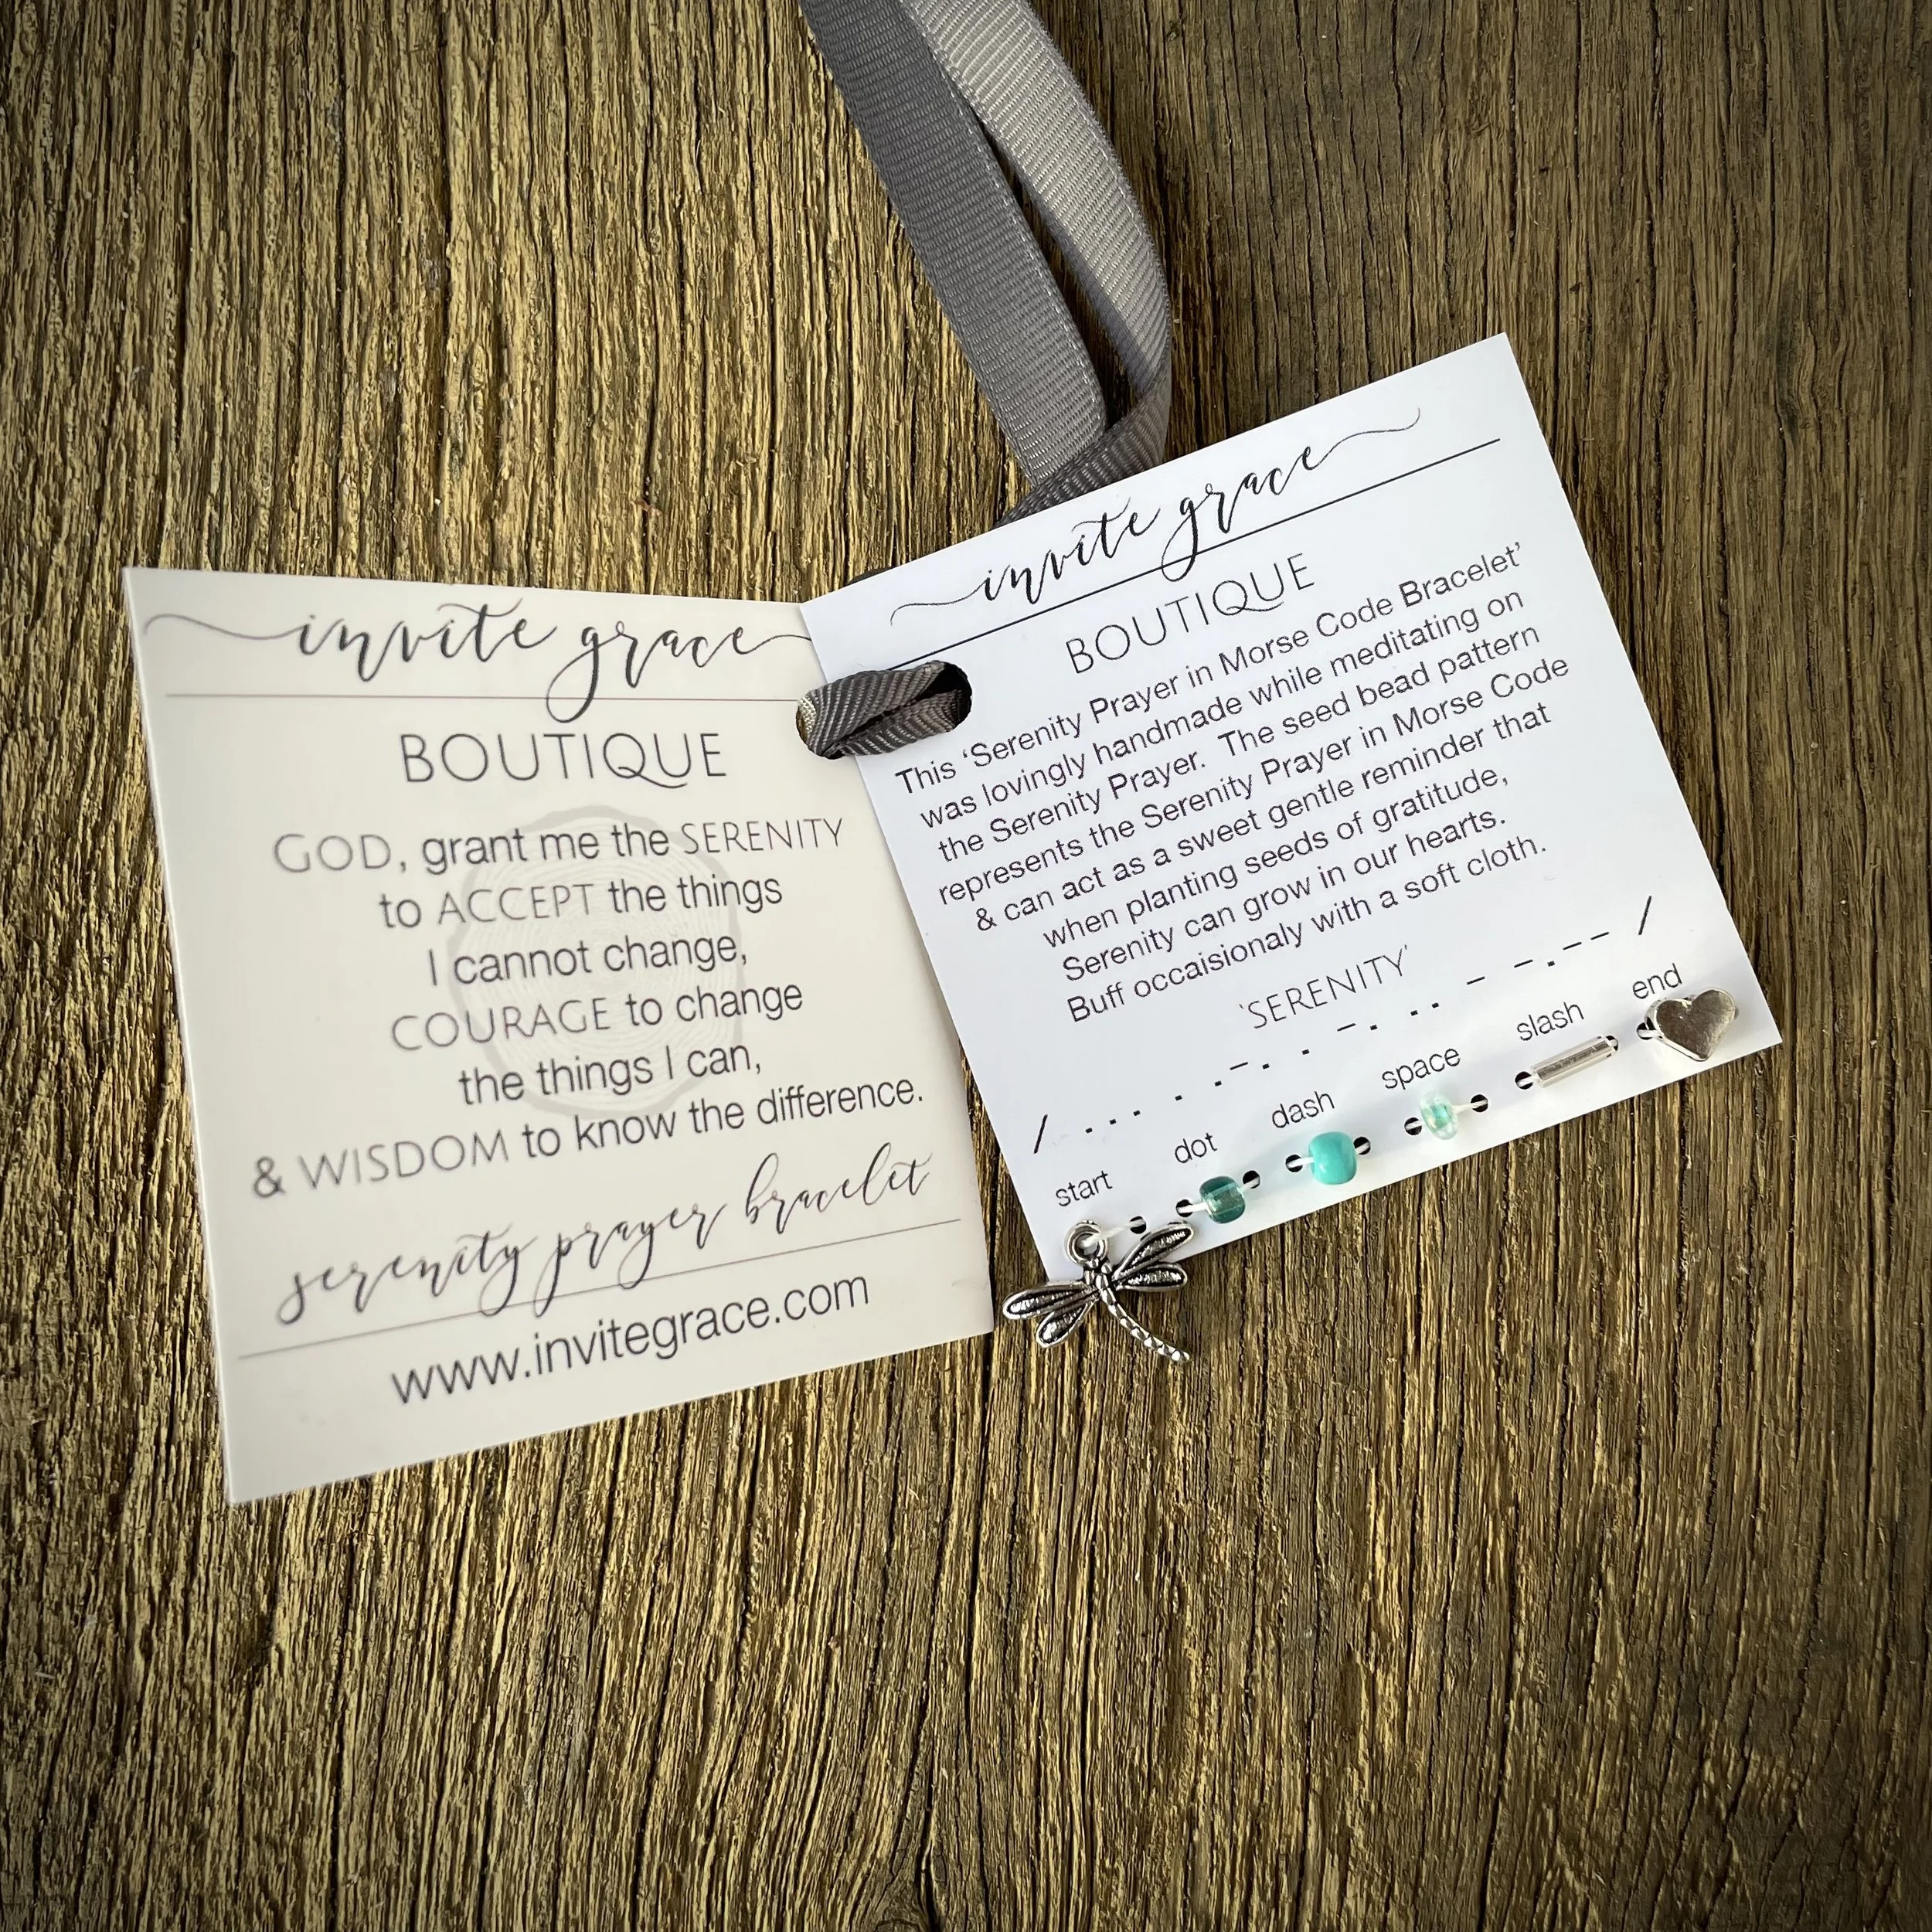 invite grace
BOUTIQUE
GOD, grant me the SERENITY
to ACCEPT the things
I cannot change,
COURAGE to change
the things I can,
& WISDOM to know the difference.
serenity prayer bracelet
www.invitegrace.com
invite grace
BOUTIQUE
This ‘Serenity Prayer in Morse Code Bracelet’
was lovingly handmade while meditating on
the Serenity Prayer. The seed bead pattern
represents the Serenity Prayer in Morse Code
& can act as a sweet gentle reminder that
when planting seeds of gratitude,
Serenity can grow in our hearts.
Buff occaisionaly with a soft cloth.
'SERENITY'
/ . . . . .–. . –. .. – –.–– /
start dot dash space slash end